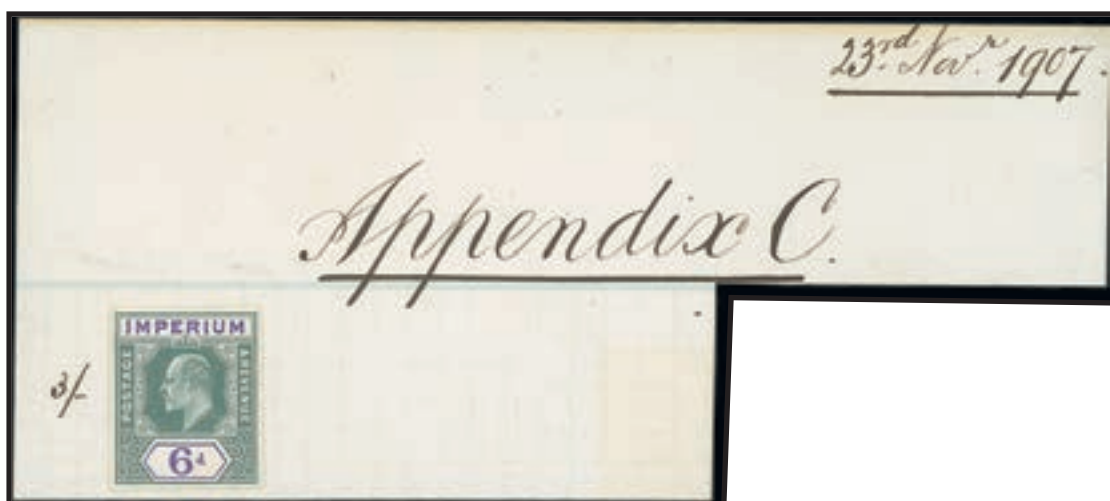 23rd. Novr. 1907.
Appendix C.
3/-
IMPERIUM
POSTAGE & REVENUE
6d